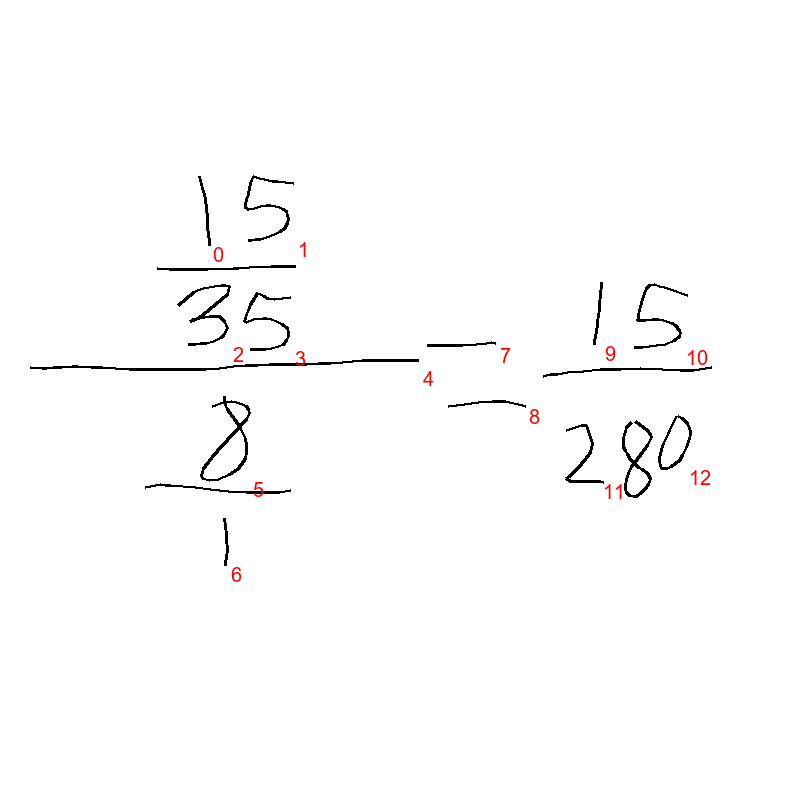 15
35
8
1
=
15
280
0
1
2
3
4
5
6
7
8
9
10
11
12